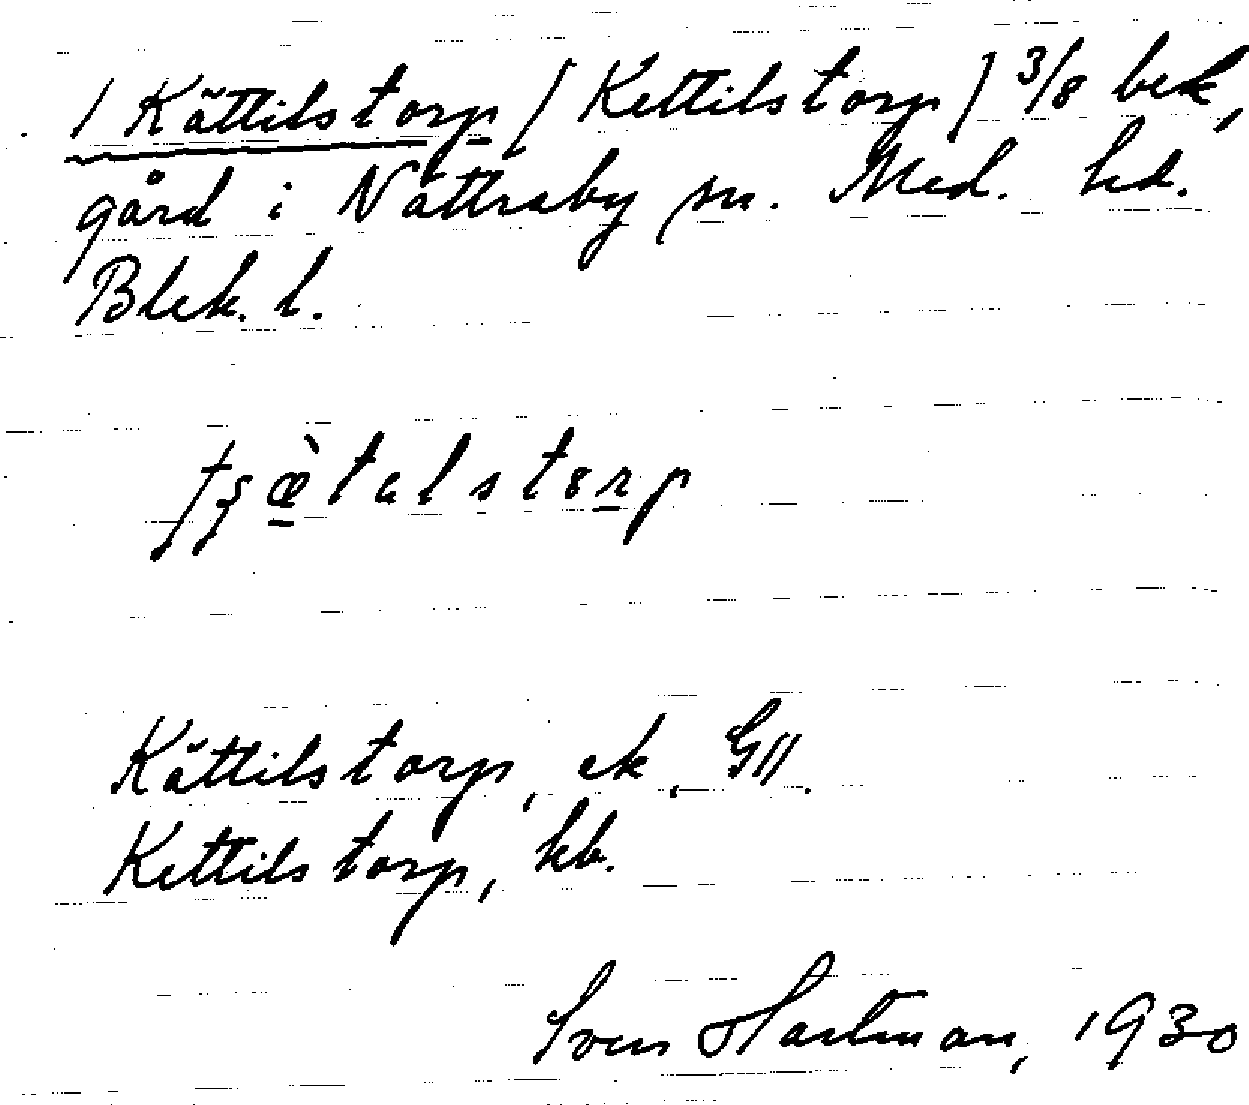 1 Kättilstorp [Kettilstorp] 3/8 bek,
gård i Nättraby sn. Med. hd.
Blek. l.
Kättilstorp, ek, GII.
Kettilstorp, kb.
Sven Hartman, 1930